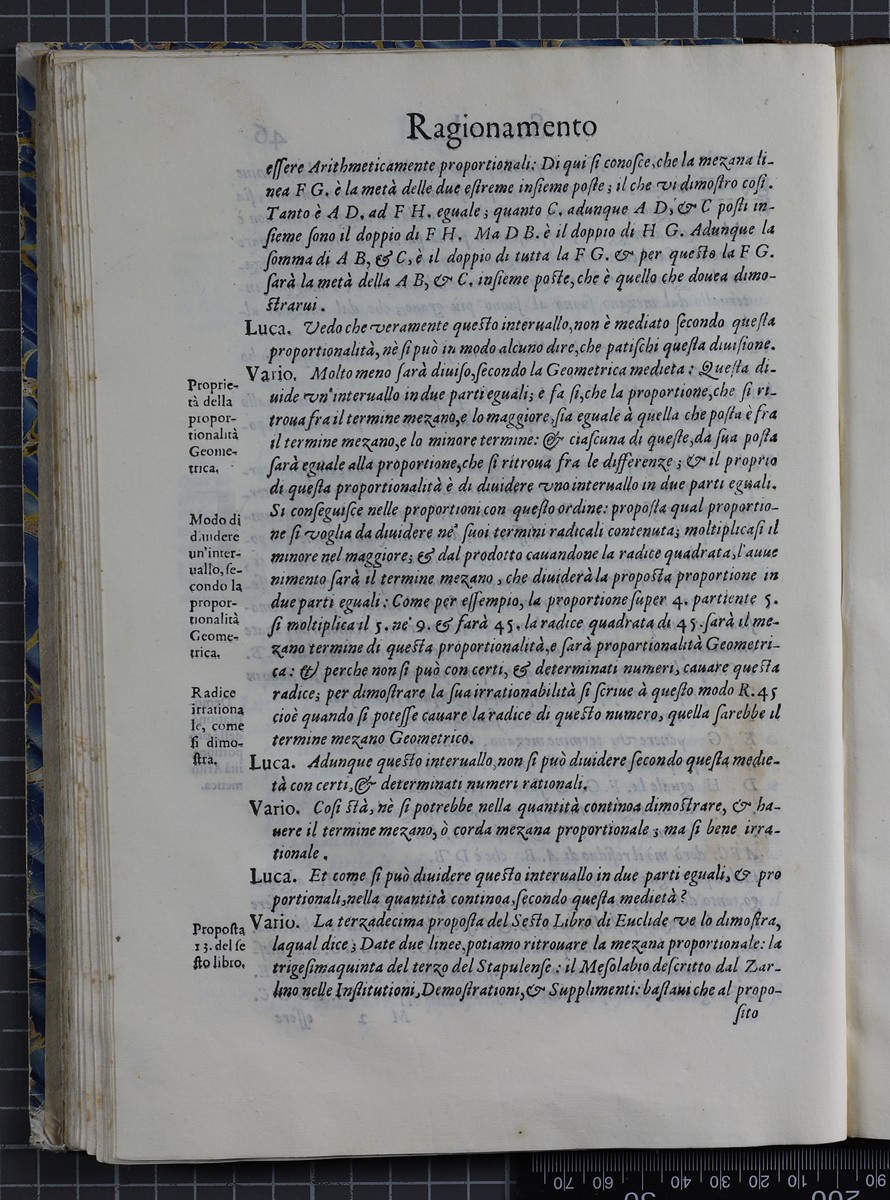 Ragionamento
eſſere Arithmeticamente proportionali: Di qui ſi conoſce, che la mezana li-
nea F G. è la metà delle due eſtreme inſieme poſte; il che vi dimoſtro coſi.
Tanto è A D. ad F H. eguale; quanto C. adunque A D, & C poſti in-
ſieme ſono il doppio di F H. Ma D B. è il doppio di H G. Adunque la
ſomma di A B, & C, è il doppio di tutta la F G. & per queſto la F G.
ſarà la metà della A B, & C. inſieme poſte, che è quello che douea dimo-
ſtrarui.
Luca. Vedo che veramente queſto interuallo, non è mediato ſecondo queſta
proportionalità, nè ſi può in modo alcuno dire, che patiſchi queſta diuiſione.
Vario. Molto meno ſarà diuiſo, ſecondo la Geometrica medieta: Queſta di-
uide vn'interuallo in due parti eguali; e fa ſi, che la proportione, che ſi ri-
troua fra il termine mezano, e lo maggiore, ſia eguale à quella che poſta è fra
il termine mezano, e lo minore termine: & ciaſcuna di queſte, da ſua poſta
ſarà eguale alla proportione, che ſi ritroua fra le differenze; & il proprio
di queſta proportionalità è di diuidere vno interuallo in due parti eguali.
Si conſeguiſce nelle proportioni con queſto ordine: propoſta qual proportio-
ne ſi voglia da diuidere ne' ſuoi termini radicali contenuta; moltiplicaſi il
minore nel maggiore; & dal prodotto cauandone la radice quadrata, l'auue
nimento ſarà il termine mezano, che diuiderà la propoſta proportione in
due parti eguali: Come per eſſempio, la proportione ſuper 4. partiente 5.
ſi moltiplica il 5. ne' 9. & farà 45. la radice quadrata di 45. ſarà il me-
zano termine di queſta proportionalità, e ſarà proportionalità Geometri-
ca: & perche non ſi può con certi, & determinati numeri, cauare queſta
radice; per dimoſtrare la ſua irrationabilità ſi ſcriue à queſto modo R. 45
cioè quando ſi poteſſe cauare la radice di queſto numero, quella ſarebbe il
termine mezano Geometrico.
Luca. Adunque queſto interuallo, non ſi può diuidere ſecondo queſta medie-
tà con certi, & determinati numeri rationali.
Vario. Coſi ſtà, nè ſi potrebbe nella quantità continoa dimoſtrare, & ha-
uere il termine mezano, ò corda mezana proportionale; ma ſi bene irra-
tionale.
Luca. Et come ſi può diuidere queſto interuallo in due parti eguali, & pro
portionali, nella quantità continoa, ſecondo queſta medietà?
Vario. La terzadecima propoſta del Seſto Libro di Euclide ve lo dimoſtra,
laqual dice; Date due linee, potiamo ritrouare la mezana proportionale: la
trigeſimaquinta del terzo del Stapulenſe: il Meſolabio deſcritto dal Zar-
lino nelle Inſtitutioni, Demoſtrationi, & Supplimenti: baſtaui che al propo-
ſito
Proprie-
tà della
propor-
tionalità
Geome-
trica.
Modo di
diuidere
un'inter-
uallo, ſe-
condo la
propor-
tionalità
Geome-
trica.
Radice
irrationa
le, come
ſi dimo-
ſtra.
Propoſta
13. del ſe
ſto libro.
70 60 50 40 30 20 10
50 100 200 90